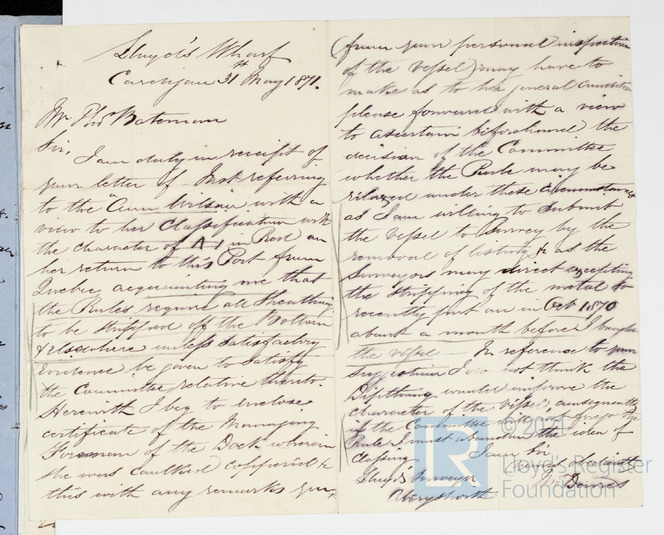 Lloyd's Wharf
Cardigan 31st May 1871.
Mr Thos Bateman
Sir,
I am duly in receipt of
your letter of Inst referring
to the "Ann" with a
view to her Classification with
the character of A 1 in Red on
her return to this Port from
Quebec acquainting me that
the Rules require all Sheathing
to be stripped off the Bottom
& elsewhere unless satisfactory
evidence be given to satisfy
the Committee relative thereto.
Herewith I beg to enclose
certificate of the Managing
Foreman of the Dock wherein
she was caulked coppered &
this with any remarks you,
(from your personal inspection
of the vessel) may have to
make as to her general Condition
please forward with a view
to ascertain beforehand the
decision of the Committee
whether the Rule may be
relaxed under these circumstances
as I am willing to submit
the vessel to Survey by the
removal of & as the
Surveyors may direct excepting
the stripping of the metal so
recently put on in Oct 1870
about a month before I bought
the vessel — In reference to your
suggestion I do not think the
would improve the
character of the vessel, consequently
if the Committee the
Rule I must abandon the idea of
Classing. I am Sir,
Lloyd's Surveyor
Aberystwith
Davies
© 2021
LR
Lloyd's Register
Foundation